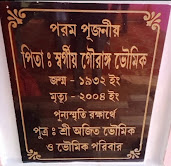 পরম পূজনীয়
পিতা : স্বর্গীয় গৌরাঙ্গ ভৌমিক
জন্ম - ১৯৩২ ইং
মৃত্যু - ২০০৪ ইং
পুন্যস্মৃতি রক্ষার্থে
পুত্র : শ্রী অজিত ভৌমিক
ও ভৌমিক পরিবার